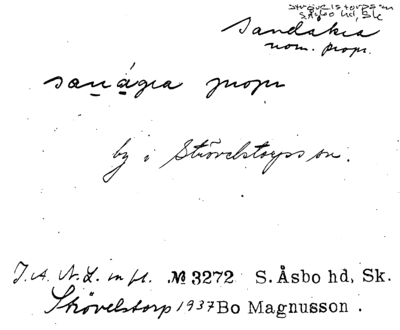 Strövelstorps sn
S. Åsbo hd, Sk
Sandåkra
nom. propr.
propr
by i Strövelstorps sn.
I.A. N.L. m fl. № 3272 S. Åsbo hd, Sk.
Strövelstorp 1937 Bo Magnusson.